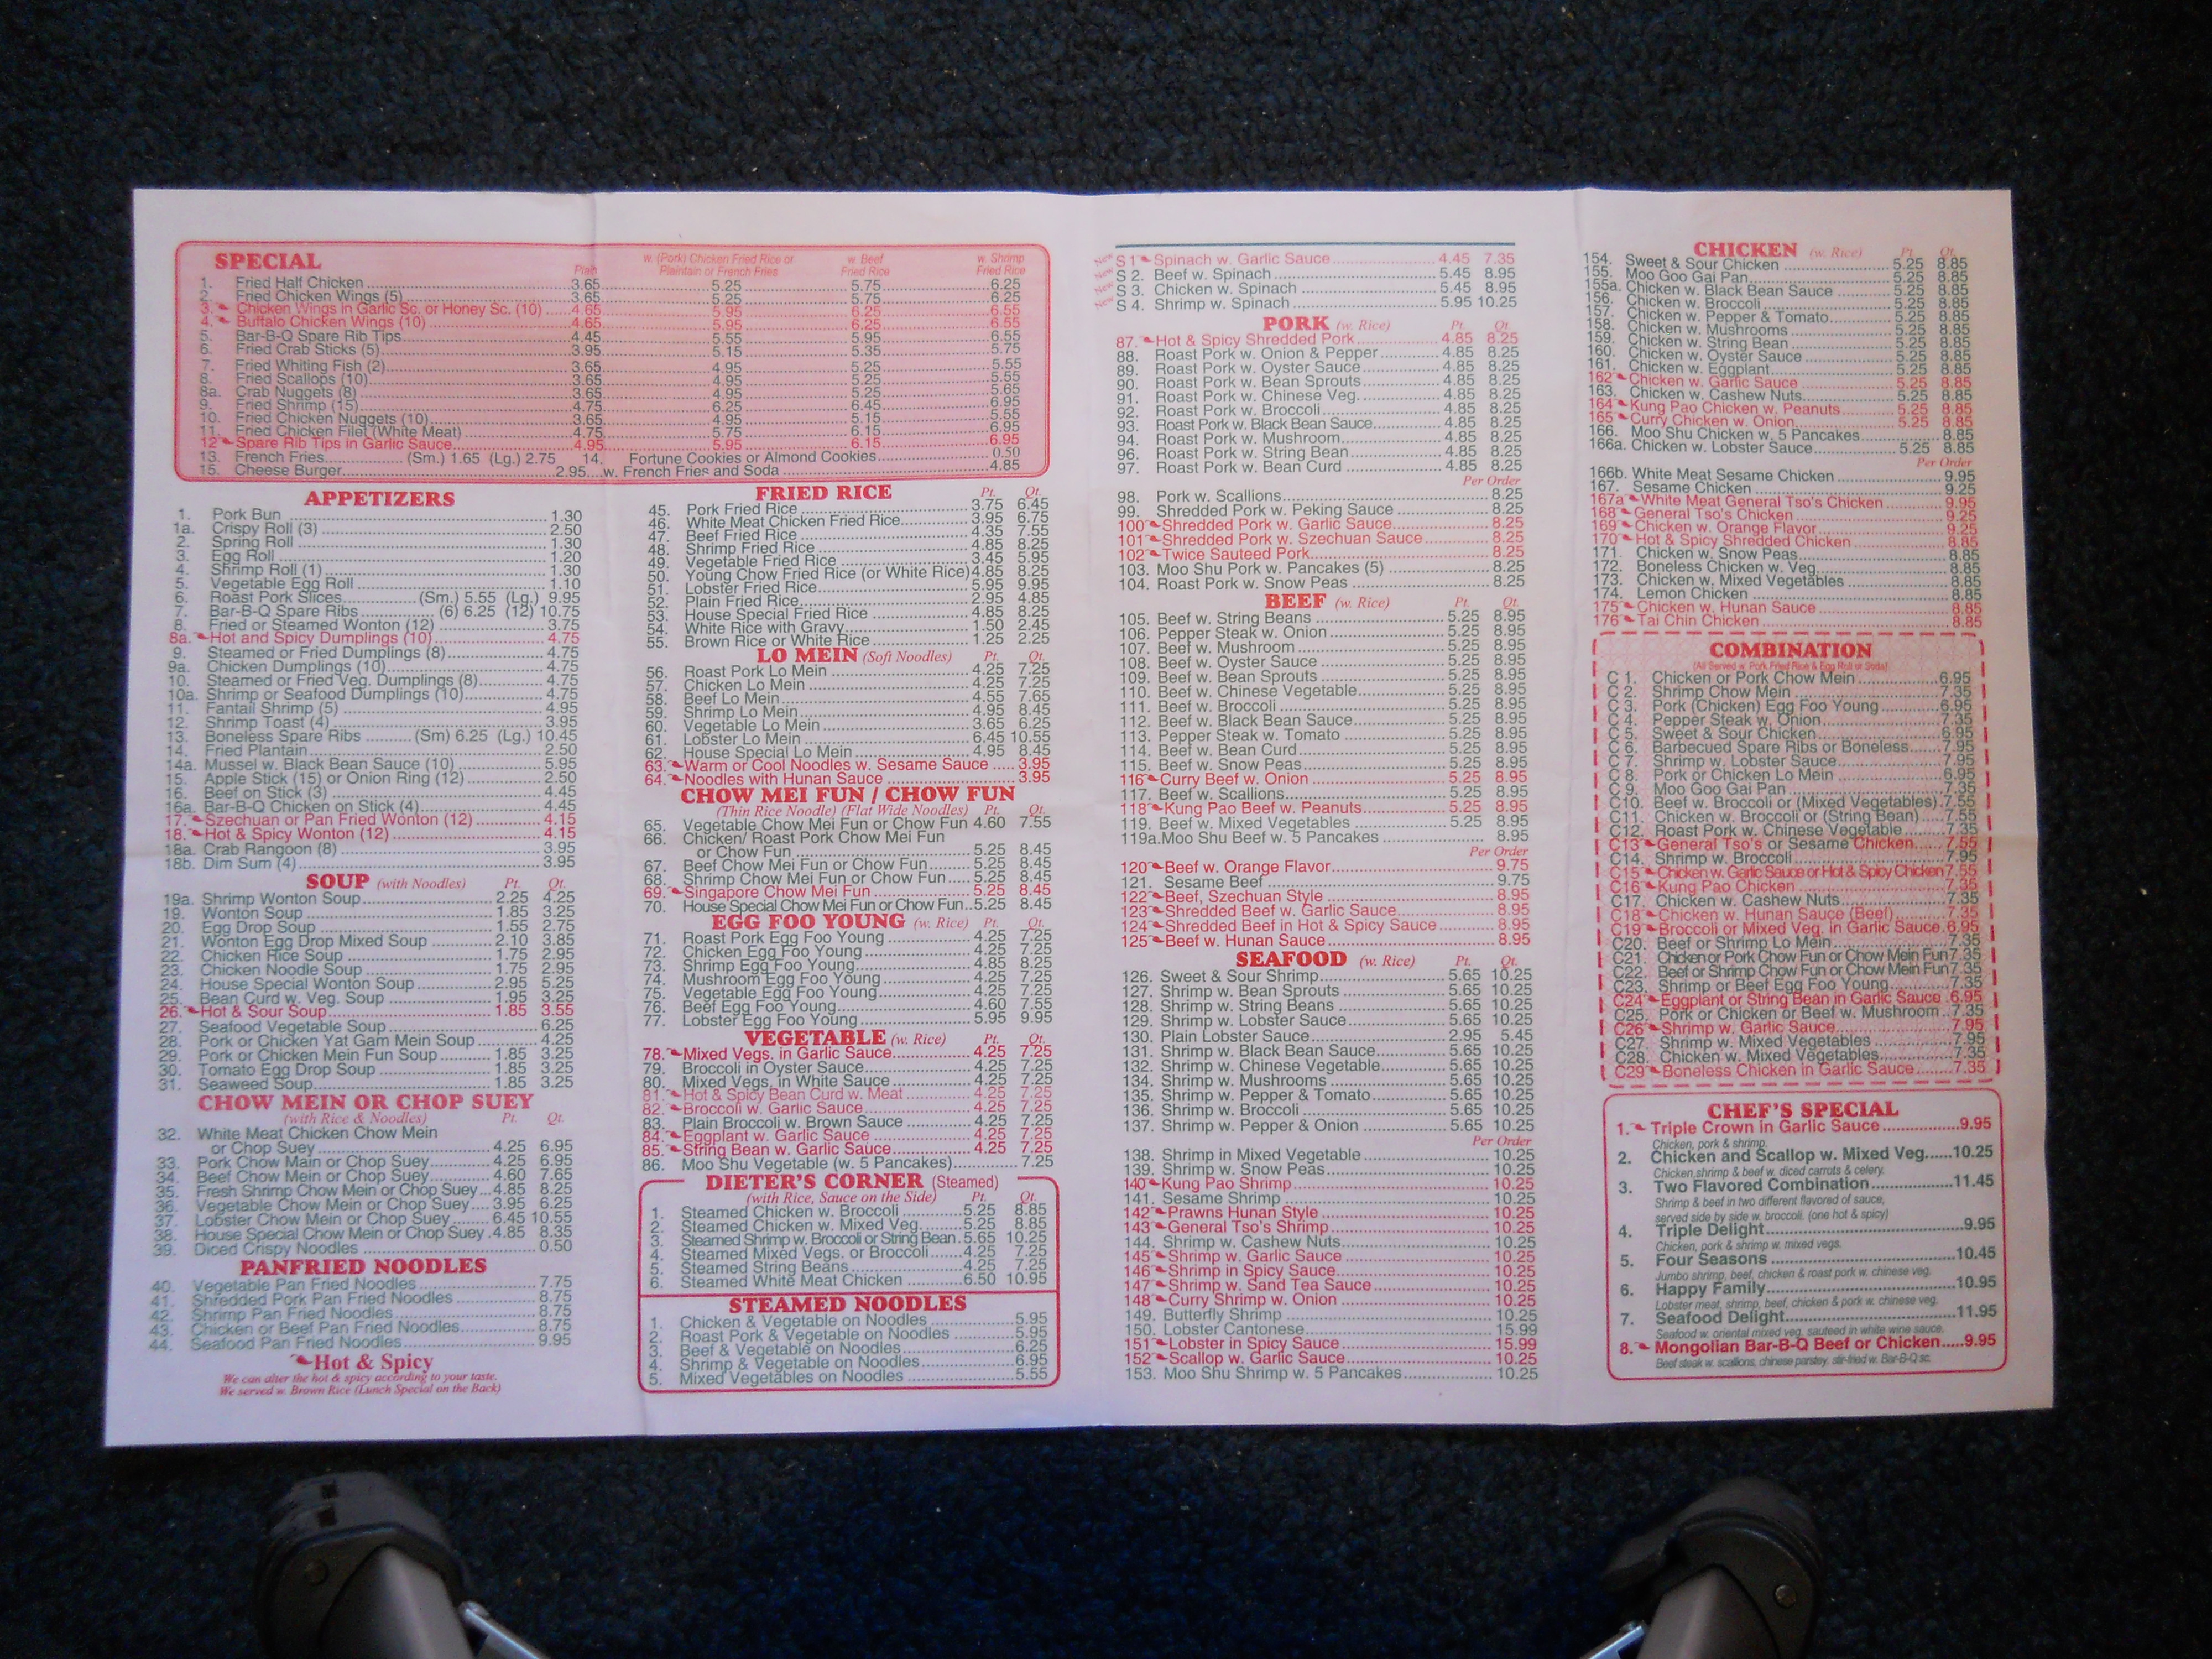 SPECIAL
Plain w. (Pork) Chicken Fried Rice or Plaintain or French Fries w. Beef Fried Rice w. Shrimp Fried Rice
1. Fried Half Chicken 3.65 5.25 5.75 6.25
2. Fried Chicken Wings (5) 3.65 5.25 5.75 6.25
3. Chicken Wings in Garlic Sc. or Honey Sc. (10) 4.65 5.95 6.25 6.55
4. Buffalo Chicken Wings (10) 4.65 5.95 6.25 6.55
5. Bar-B-Q Spare Rib Tips 4.45 5.55 5.95 6.55
6. Fried Crab Sticks (5) 3.95 5.15 5.35 5.75
7. Fried Whiting Fish (2) 3.65 4.95 5.25 5.55
8. Fried Scallops (10) 3.65 4.95 5.25 5.55
8a. Crab Nuggets (8) 3.65 4.95 5.25 5.65
9. Fried Shrimp (15) 4.75 6.25 6.45 6.95
10. Fried Chicken Nuggets (10) 3.65 4.95 5.15 5.55
11. Fried Chicken Filet (White Meat) 4.75 5.75 6.15 6.95
12 Spare Rib Tips in Garlic Sauce 4.95 5.95 6.15 6.95
13. French Fries (Sm.) 1.65 (Lg.) 2.75 14. Fortune Cookies or Almond Cookies 0.50
15. Cheese Burger 2.95 w. French Fries and Soda 4.85
APPETIZERS
1. Pork Bun 1.30
1a. Crispy Roll (3) 2.50
2. Spring Roll 1.30
3. Egg Roll 1.20
4. Shrimp Roll (1) 1.30
5. Vegetable Egg Roll 1.10
6. Roast Pork Slices (Sm.) 5.55 (Lg.) 9.95
7. Bar-B-Q Spare Ribs (6) 6.25 (12) 10.75
8. Fried or Steamed Wonton (12) 3.75
8a. Hot and Spicy Dumplings (10) 4.75
9. Steamed or Fried Dumplings (8) 4.75
9a. Chicken Dumplings (10) 4.75
10. Steamed or Fried Veg. Dumplings (8) 4.75
10a. Shrimp or Seafood Dumplings (10) 4.75
11. Fantail Shrimp (5) 4.95
12. Shrimp Toast (4) 3.95
13. Boneless Spare Ribs (Sm) 6.25 (Lg.) 10.45
14. Fried Plantain 2.50
14a. Mussel w. Black Bean Sauce (10) 5.95
15. Apple Stick (15) or Onion Ring (12) 2.50
16. Beef on Stick (3) 4.45
16a. Bar-B-Q Chicken on Stick (4) 4.45
17. Szechuan or Pan Fried Wonton (12) 4.15
18. Hot & Spicy Wonton (12) 4.15
18a. Crab Rangoon (8) 3.95
18b. Dim Sum (4) 3.95
SOUP (with Noodles) Pt. Qt.
19a. Shrimp Wonton Soup 2.25 4.25
19. Wonton Soup 1.85 3.25
20. Egg Drop Soup 1.55 2.75
21. Wonton Egg Drop Mixed Soup 2.10 3.85
22. Chicken Rice Soup 1.75 2.95
23. Chicken Noodle Soup 1.75 2.95
24. House Special Wonton Soup 2.95 5.25
25. Bean Curd w. Veg. Soup 1.95 3.25
26. Hot & Sour Soup 1.85 3.55
27. Seafood Vegetable Soup 6.25
28. Pork or Chicken Yat Gam Mein Soup 4.25
29. Pork or Chicken Mein Fun Soup 1.85 3.25
30. Tomato Egg Drop Soup 1.85 3.25
31. Seaweed Soup 1.85 3.25
CHOW MEIN OR CHOP SUEY
(with Rice & Noodles) Pt. Qt.
32. White Meat Chicken Chow Mein
or Chop Suey 4.25 6.95
33. Pork Chow Main or Chop Suey 4.25 6.95
34. Beef Chow Mein or Chop Suey 4.60 7.65
35. Fresh Shrimp Chow Mein or Chop Suey 4.85 8.25
36. Vegetable Chow Mein or Chop Suey 3.95 6.25
37. Lobster Chow Mein or Chop Suey 6.45 10.55
38. House Special Chow Mein or Chop Suey 4.85 8.35
39. Diced Crispy Noodles 0.50
PANFRIED NOODLES
40. Vegetable Pan Fried Noodles 7.75
41. Shredded Pork Pan Fried Noodles 8.75
42. Shrimp Pan Fried Noodles 8.75
43. Chicken or Beef Pan Fried Noodles 8.75
44. Seafood Pan Fried Noodles 9.95
Hot & Spicy
We can alter the hot & spicy according to your taste.
We served w. Brown Rice (Lunch Special on the Back)
FRIED RICE Pt. Qt.
45. Pork Fried Rice 3.75 6.45
46. White Meat Chicken Fried Rice 3.95 6.75
47. Beef Fried Rice 4.35 7.55
48. Shrimp Fried Rice 4.85 8.25
49. Vegetable Fried Rice 3.45 5.95
50. Young Chow Fried Rice (or White Rice) 4.85 8.25
51. Lobster Fried Rice 5.95 9.95
52. Plain Fried Rice 2.95 4.85
53. House Special Fried Rice 4.85 8.25
54. White Rice with Gravy 1.50 2.45
55. Brown Rice or White Rice 1.25 2.25
LO MEIN (Soft Noodles) Pt. Qt.
56. Roast Pork Lo Mein 4.25 7.25
57. Chicken Lo Mein 4.25 7.25
58. Beef Lo Mein 4.55 7.65
59. Shrimp Lo Mein 4.95 8.45
60. Vegetable Lo Mein 3.65 6.25
61. Lobster Lo Mein 6.45 10.55
62. House Special Lo Mein 4.95 8.45
63. Warm or Cool Noodles w. Sesame Sauce 3.95
64. Noodles with Hunan Sauce 3.95
CHOW MEI FUN / CHOW FUN
(Thin Rice Noodle) (Flat Wide Noodles) Pt. Qt.
65. Vegetable Chow Mei Fun or Chow Fun 4.60 7.55
66. Chicken/ Roast Pork Chow Mei Fun
or Chow Fun 5.25 8.45
67. Beef Chow Mei Fun or Chow Fun 5.25 8.45
68. Shrimp Chow Mei Fun or Chow Fun 5.25 8.45
69. Singapore Chow Mei Fun 5.25 8.45
70. House Special Chow Mei Fun or Chow Fun 5.25 8.45
EGG FOO YOUNG (w. Rice) Pt. Qt.
71. Roast Pork Egg Foo Young 4.25 7.25
72. Chicken Egg Foo Young 4.25 7.25
73. Shrimp Egg Foo Young 4.85 8.25
74. Mushroom Egg Foo Young 4.25 7.25
75. Vegetable Egg Foo Young 4.25 7.25
76. Beef Egg Foo Young 4.60 7.55
77. Lobster Egg Foo Young 5.95 9.95
VEGETABLE (w. Rice) Pt. Qt.
78. Mixed Vegs. in Garlic Sauce 4.25 7.25
79. Broccoli in Oyster Sauce 4.25 7.25
80. Mixed Vegs. in White Sauce 4.25 7.25
81. Hot & Spicy Bean Curd w. Meat 4.25 7.25
82. Broccoli w. Garlic Sauce 4.25 7.25
83. Plain Broccoli w. Brown Sauce 4.25 7.25
84. Eggplant w. Garlic Sauce 4.25 7.25
85. String Bean w. Garlic Sauce 4.25 7.25
86. Moo Shu Vegetable (w. 5 Pancakes) 7.25
DIETER'S CORNER (Steamed)
(with Rice, Sauce on the Side) Pt. Qt.
1. Steamed Chicken w. Broccoli 5.25 8.85
2. Steamed Chicken w. Mixed Veg. 5.25 8.85
3. Steamed Shrimp w. Broccoli or String Bean 5.65 10.25
4. Steamed Mixed Vegs. or Broccoli 4.25 7.25
5. Steamed String Beans 4.25 7.25
6. Steamed White Meat Chicken 6.50 10.95
STEAMED NOODLES
1. Chicken & Vegetable on Noodles 5.95
2. Roast Pork & Vegetable on Noodles 5.95
3. Beef & Vegetable on Noodles 6.25
4. Shrimp & Vegetable on Noodles 6.95
5. Mixed Vegetables on Noodles 5.55
New S 1 Spinach w. Garlic Sauce 4.45 7.35
New S 2. Beef w. Spinach 5.45 8.95
New S 3. Chicken w. Spinach 5.45 8.95
New S 4. Shrimp w. Spinach 5.95 10.25
PORK (w. Rice) Pt. Qt.
87. Hot & Spicy Shredded Pork 4.85 8.25
88. Roast Pork w. Onion & Pepper 4.85 8.25
89. Roast Pork w. Oyster Sauce 4.85 8.25
90. Roast Pork w. Bean Sprouts 4.85 8.25
91. Roast Pork w. Chinese Veg. 4.85 8.25
92. Roast Pork w. Broccoli 4.85 8.25
93. Roast Pork w. Black Bean Sauce 4.85 8.25
94. Roast Pork w. Mushroom 4.85 8.25
96. Roast Pork w. String Bean 4.85 8.25
97. Roast Pork w. Bean Curd 4.85 8.25
Per Order
98. Pork w. Scallions 8.25
99. Shredded Pork w. Peking Sauce 8.25
100 Shredded Pork w. Garlic Sauce 8.25
101 Shredded Pork w. Szechuan Sauce 8.25
102 Twice Sauteed Pork 8.25
103. Moo Shu Pork w. Pancakes (5) 8.25
104. Roast Pork w. Snow Peas 8.25
BEEF (w. Rice) Pt. Qt.
105. Beef w. String Beans 5.25 8.95
106. Pepper Steak w. Onion 5.25 8.95
107. Beef w. Mushroom 5.25 8.95
108. Beef w. Oyster Sauce 5.25 8.95
109. Beef w. Bean Sprouts 5.25 8.95
110. Beef w. Chinese Vegetable 5.25 8.95
111. Beef w. Broccoli 5.25 8.95
112. Beef w. Black Bean Sauce 5.25 8.95
113. Pepper Steak w. Tomato 5.25 8.95
114. Beef w. Bean Curd 5.25 8.95
115. Beef w. Snow Peas 5.25 8.95
116 Curry Beef w. Onion 5.25 8.95
117. Beef w. Scallions 5.25 8.95
118 Kung Pao Beef w. Peanuts 5.25 8.95
119. Beef w. Mixed Vegetables 5.25 8.95
119a. Moo Shu Beef w. 5 Pancakes 8.95
Per Order
120 Beef w. Orange Flavor 9.75
121. Sesame Beef 9.75
122 Beef, Szechuan Style 8.95
123 Shredded Beef w. Garlic Sauce 8.95
124 Shredded Beef in Hot & Spicy Sauce 8.95
125 Beef w. Hunan Sauce 8.95
SEAFOOD (w. Rice) Pt. Qt.
126. Sweet & Sour Shrimp 5.65 10.25
127. Shrimp w. Bean Sprouts 5.65 10.25
128. Shrimp w. String Beans 5.65 10.25
129. Shrimp w. Lobster Sauce 5.65 10.25
130. Plain Lobster Sauce 2.95 5.45
131. Shrimp w. Black Bean Sauce 5.65 10.25
132. Shrimp w. Chinese Vegetable 5.65 10.25
134. Shrimp w. Mushrooms 5.65 10.25
135. Shrimp w. Pepper & Tomato 5.65 10.25
136. Shrimp w. Broccoli 5.65 10.25
137. Shrimp w. Pepper & Onion 5.65 10.25
Per Order
138. Shrimp in Mixed Vegetable 10.25
139. Shrimp w. Snow Peas 10.25
140 Kung Pao Shrimp 10.25
141. Sesame Shrimp 10.25
142 Prawns Hunan Style 10.25
143 General Tso's Shrimp 10.25
144. Shrimp w. Cashew Nuts 10.25
145 Shrimp w. Garlic Sauce 10.25
146 Shrimp in Spicy Sauce 10.25
147 Shrimp w. Sand Tea Sauce 10.25
148 Curry Shrimp w. Onion 10.25
149. Butterfly Shrimp 10.25
150. Lobster Cantonese 15.99
151 Lobster in Spicy Sauce 15.99
152 Scallop w. Garlic Sauce 10.25
153. Moo Shu Shrimp w. 5 Pancakes 10.25
CHICKEN (w. Rice) Pt. Qt.
154. Sweet & Sour Chicken 5.25 8.85
155. Moo Goo Gai Pan 5.25 8.85
155a. Chicken w. Black Bean Sauce 5.25 8.85
156. Chicken w. Broccoli 5.25 8.85
157. Chicken w. Pepper & Tomato 5.25 8.85
158. Chicken w. Mushrooms 5.25 8.85
159. Chicken w. String Bean 5.25 8.85
160. Chicken w. Oyster Sauce 5.25 8.85
161. Chicken w. Eggplant 5.25 8.85
162 Chicken w. Garlic Sauce 5.25 8.85
163. Chicken w. Cashew Nuts 5.25 8.85
164 Kung Pao Chicken w. Peanuts 5.25 8.85
165 Curry Chicken w. Onion 5.25 8.85
166. Moo Shu Chicken w. 5 Pancakes 8.85
166a. Chicken w. Lobster Sauce 5.25 8.85
Per Order
166b. White Meat Sesame Chicken 9.95
167. Sesame Chicken 9.25
167a White Meat General Tso's Chicken 9.95
168 General Tso's Chicken 9.25
169 Chicken w. Orange Flavor 9.25
170 Hot & Spicy Shredded Chicken 8.85
171. Chicken w. Snow Peas 8.85
172. Boneless Chicken w. Veg. 8.85
173. Chicken w. Mixed Vegetables 8.85
174. Lemon Chicken 8.85
175 Chicken w. Hunan Sauce 8.85
176 Tai Chin Chicken 8.85
COMBINATION
(All Served w. Pork Fried Rice & Egg Roll or Soda)
C 1. Chicken or Pork Chow Mein 6.95
C 2. Shrimp Chow Mein 7.35
C 3. Pork (Chicken) Egg Foo Young 6.95
C 4. Pepper Steak w. Onion 7.35
C 5. Sweet & Sour Chicken 6.95
C 6. Barbecued Spare Ribs or Boneless 7.95
C 7. Shrimp w. Lobster Sauce 7.95
C 8. Pork or Chicken Lo Mein 6.95
C 9. Moo Goo Gai Pan 7.35
C10. Beef w. Broccoli or (Mixed Vegetables) 7.55
C11. Chicken w. Broccoli or (String Bean) 7.55
C12. Roast Pork w. Chinese Vegetable 7.35
C13 General Tso's or Sesame Chicken 7.55
C14. Shrimp w. Broccoli 7.95
C15 Chicken w. Garlic Sauce or Hot & Spicy Chicken 7.55
C16 Kung Pao Chicken 7.35
C17. Chicken w. Cashew Nuts 7.35
C18 Chicken w. Hunan Sauce (Beef) 7.35
C19 Broccoli or Mixed Veg. in Garlic Sauce 6.95
C20. Beef or Shrimp Lo Mein 7.35
C21. Chicken or Pork Chow Fun or Chow Mein Fun 7.35
C22. Beef or Shrimp Chow Fun or Chow Mein Fun 7.35
C23. Shrimp or Beef Egg Foo Young 7.35
C24 Eggplant or String Bean in Garlic Sauce 6.95
C25. Pork or Chicken or Beef w. Mushroom 7.35
C26 Shrimp w. Garlic Sauce 7.95
C27. Shrimp w. Mixed Vegetables 7.95
C28. Chicken w. Mixed Vegetables 7.35
C29 Boneless Chicken in Garlic Sauce 7.35
CHEF'S SPECIAL
1. Triple Crown in Garlic Sauce 9.95
Chicken, pork & shrimp.
2. Chicken and Scallop w. Mixed Veg. 10.25
Chicken, shrimp & beef w. diced carrots & celery.
3. Two Flavored Combination 11.45
Shrimp & beef in two different flavored of sauce,
served side by side w. broccoli. (one hot & spicy)
4. Triple Delight 9.95
Chicken, pork & shrimp w. mixed vegs.
5. Four Seasons 10.45
Jumbo shrimp, beef, chicken & roast pork w. chinese veg.
6. Happy Family 10.95
Lobster meat, shrimp, beef, chicken & pork w. chinese veg.
7. Seafood Delight 11.95
Seafood w. oriental mixed veg. sauteed in white wine sauce.
8. Mongolian Bar-B-Q Beef or Chicken 9.95
Beef steak w. scallions, chinese parsley, stir-fried w. Bar-B-Q sc.